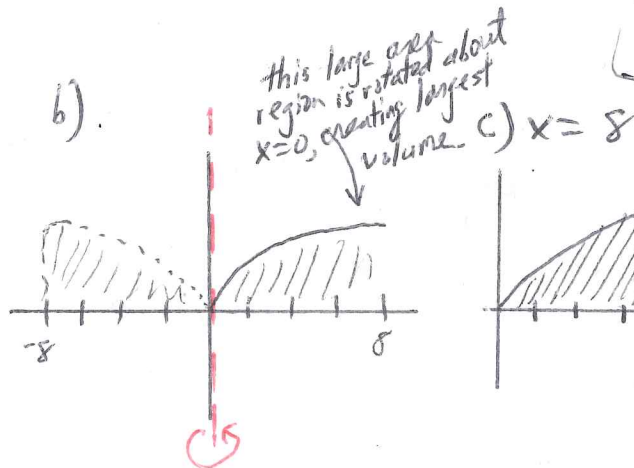 b).
this large area
region is rotated about
x=0, creating largest
volume
c) x = 8
-8
8